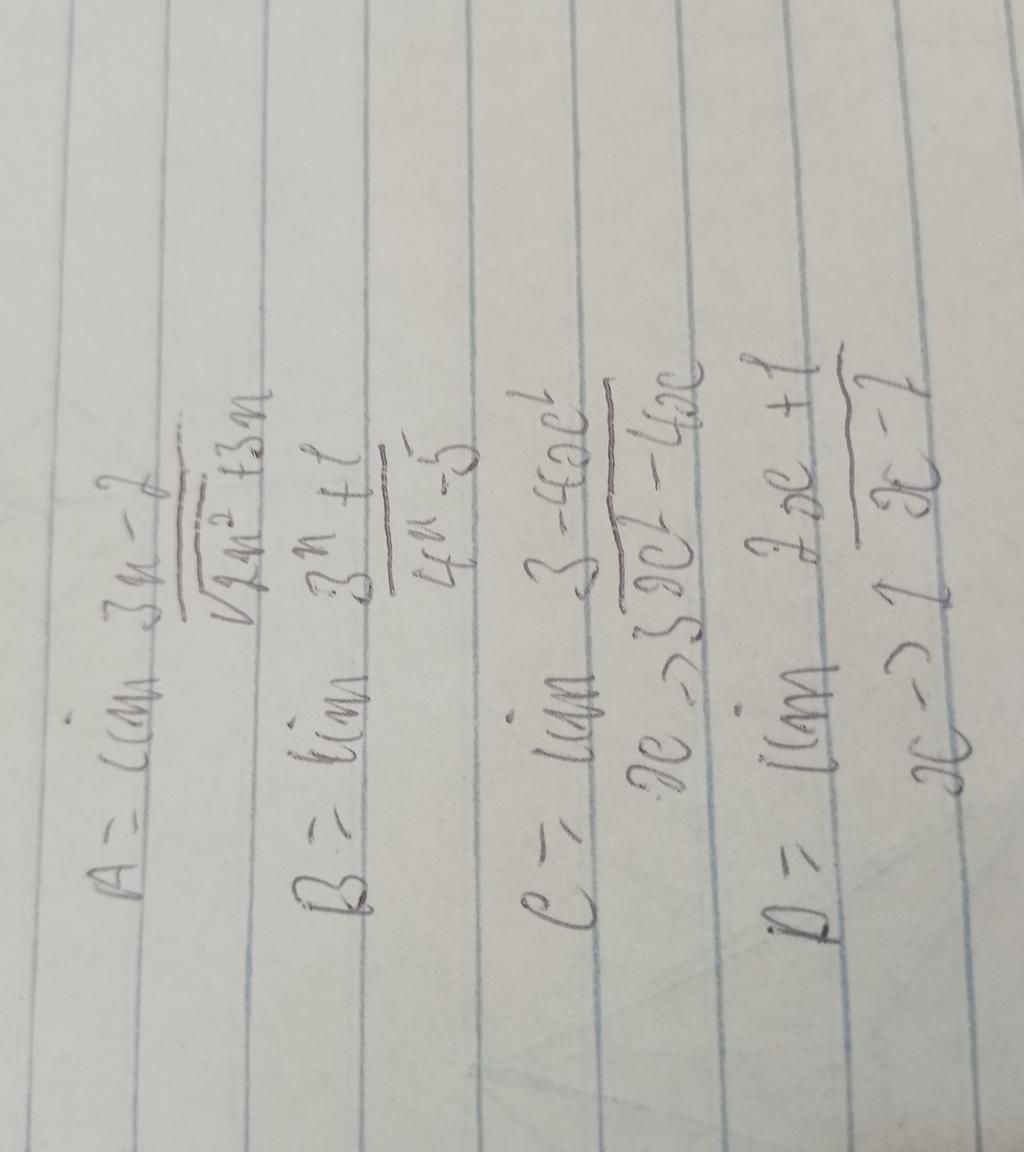 A = lim 3n - 2
√2n² + 3n
B = lim 3ⁿ + 1
4ⁿ - 5
C = lim 3 - 4x²
x -> 3 x² - 4x
D = lim 2x + 1
x -> 1 x - 1